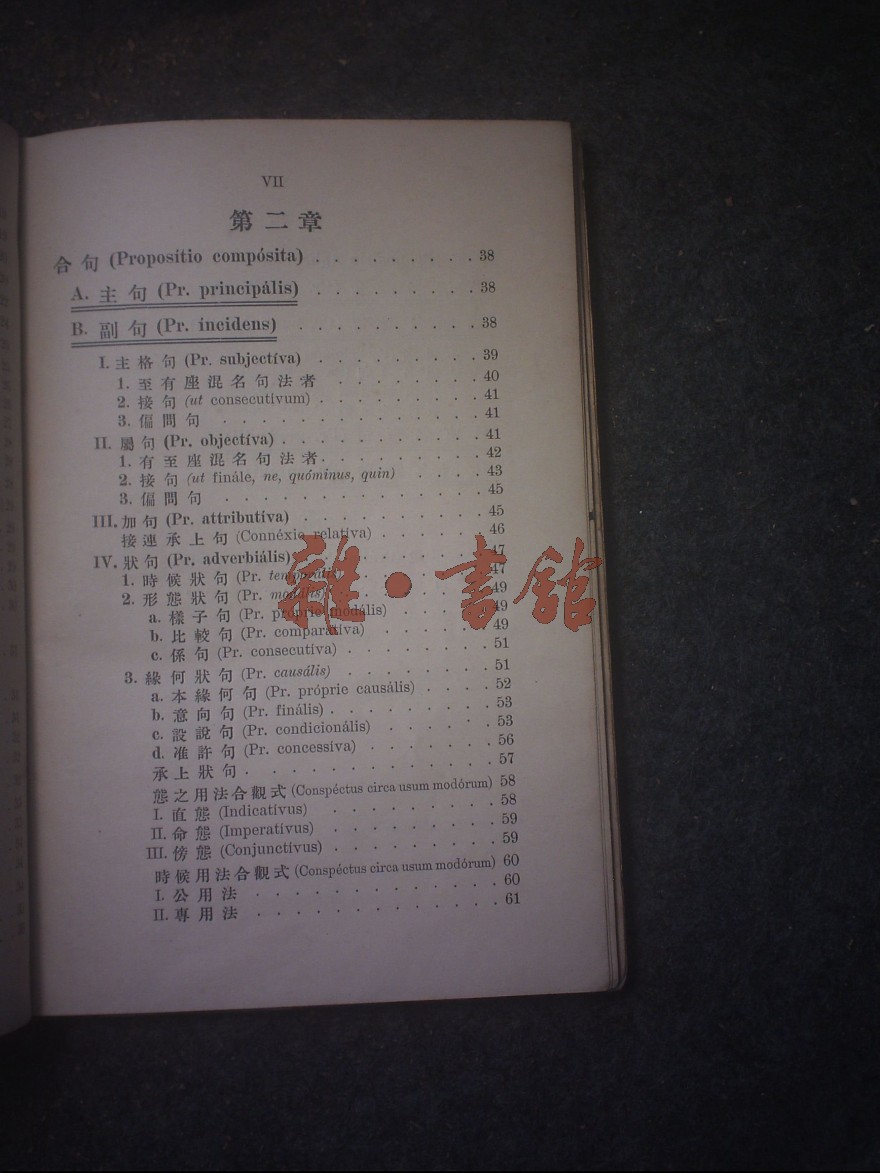 VII
第二章
合句 (Propositío compósita) . . . . . . . . . 38
A. 主句 (Pr. principális) . . . . . . . . . 38
B. 副句 (Pr. incidens) . . . . . . . . . . 38
I. 主格句 (Pr. subjectíva) . . . . . . . . . 39
1. 至有座混名句法者 . . . . . . . . 40
2. 接句 (ut consecutivum) . . . . . . . . 41
3. 偏問句 . . . . . . . . . . . . 41
II. 屬句 (Pr. objectíva) . . . . . . . . . . 41
1. 有至座混名句法者 . . . . . . . . . 42
2. 接句 (ut finále, ne, quóminus, quin) . . . . . 43
3. 偏問句 . . . . . . . . . . . . 45
III. 加句 (Pr. attributíva) . . . . . . . . . 45
接連承上句 (Connéxio relatíva) . . . . . . 46
IV. 狀句 (Pr. adverbiális) . . . . . . . . . 47
1. 時候狀句 (Pr. temporális) . . . . . . . 47
2. 形態狀句 (Pr. modális) . . . . . . . . 49
a. 樣子句 (Pr. próprie modális) . . . . . 49
b. 比較句 (Pr. comparatíva) . . . . . . 49
c. 係句 (Pr. consecutíva) . . . . . . . 51
3. 緣何狀句 (Pr. causális) . . . . . . . . 51
a. 本緣何句 (Pr. próprie causális) . . . . 52
b. 意向句 (Pr. finális) . . . . . . . . 53
c. 設說句 (Pr. condicionális) . . . . . . 53
d. 准許句 (Pr. concessíva) . . . . . . . 56
承上狀句 . . . . . . . . . . . 57
態之用法合觀式 (Conspéctus circa usum modórum) 58
I. 直態 (Indicatívus) . . . . . . . . . 58
II. 命態 (Imperatívus) . . . . . . . . . 59
III. 傍態 (Conjunctívus) . . . . . . . . . 59
時候用法合觀式 (Conspéctus circa usum modórum) 60
I. 公用法 . . . . . . . . . . . . 60
II. 專用法 . . . . . . . . . . . . 61
雜·書館